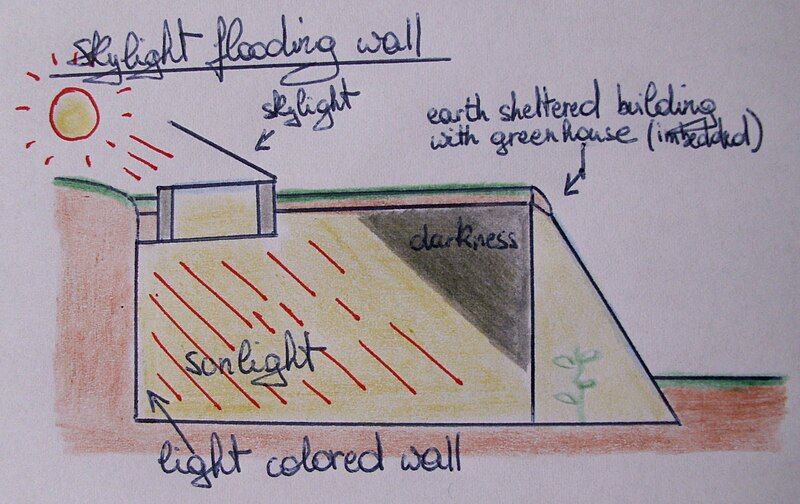 skylight flooding wall
skylight
earth sheltered building
with greenhouse (imbedded)
darkness
sunlight
light colored wall